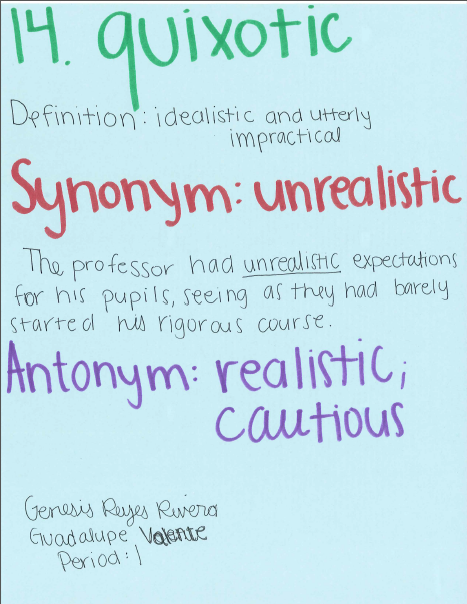 14. quixotic
Definition: idealistic and utterly
impractical
Synonym: unrealistic
The professor had unrealistic expectations
for his pupils, seeing as they had barely
started his rigorous course.
Antonym: realistic;
cautious
Genesis Reyes Rivera
Guadalupe Valente
Period: 1